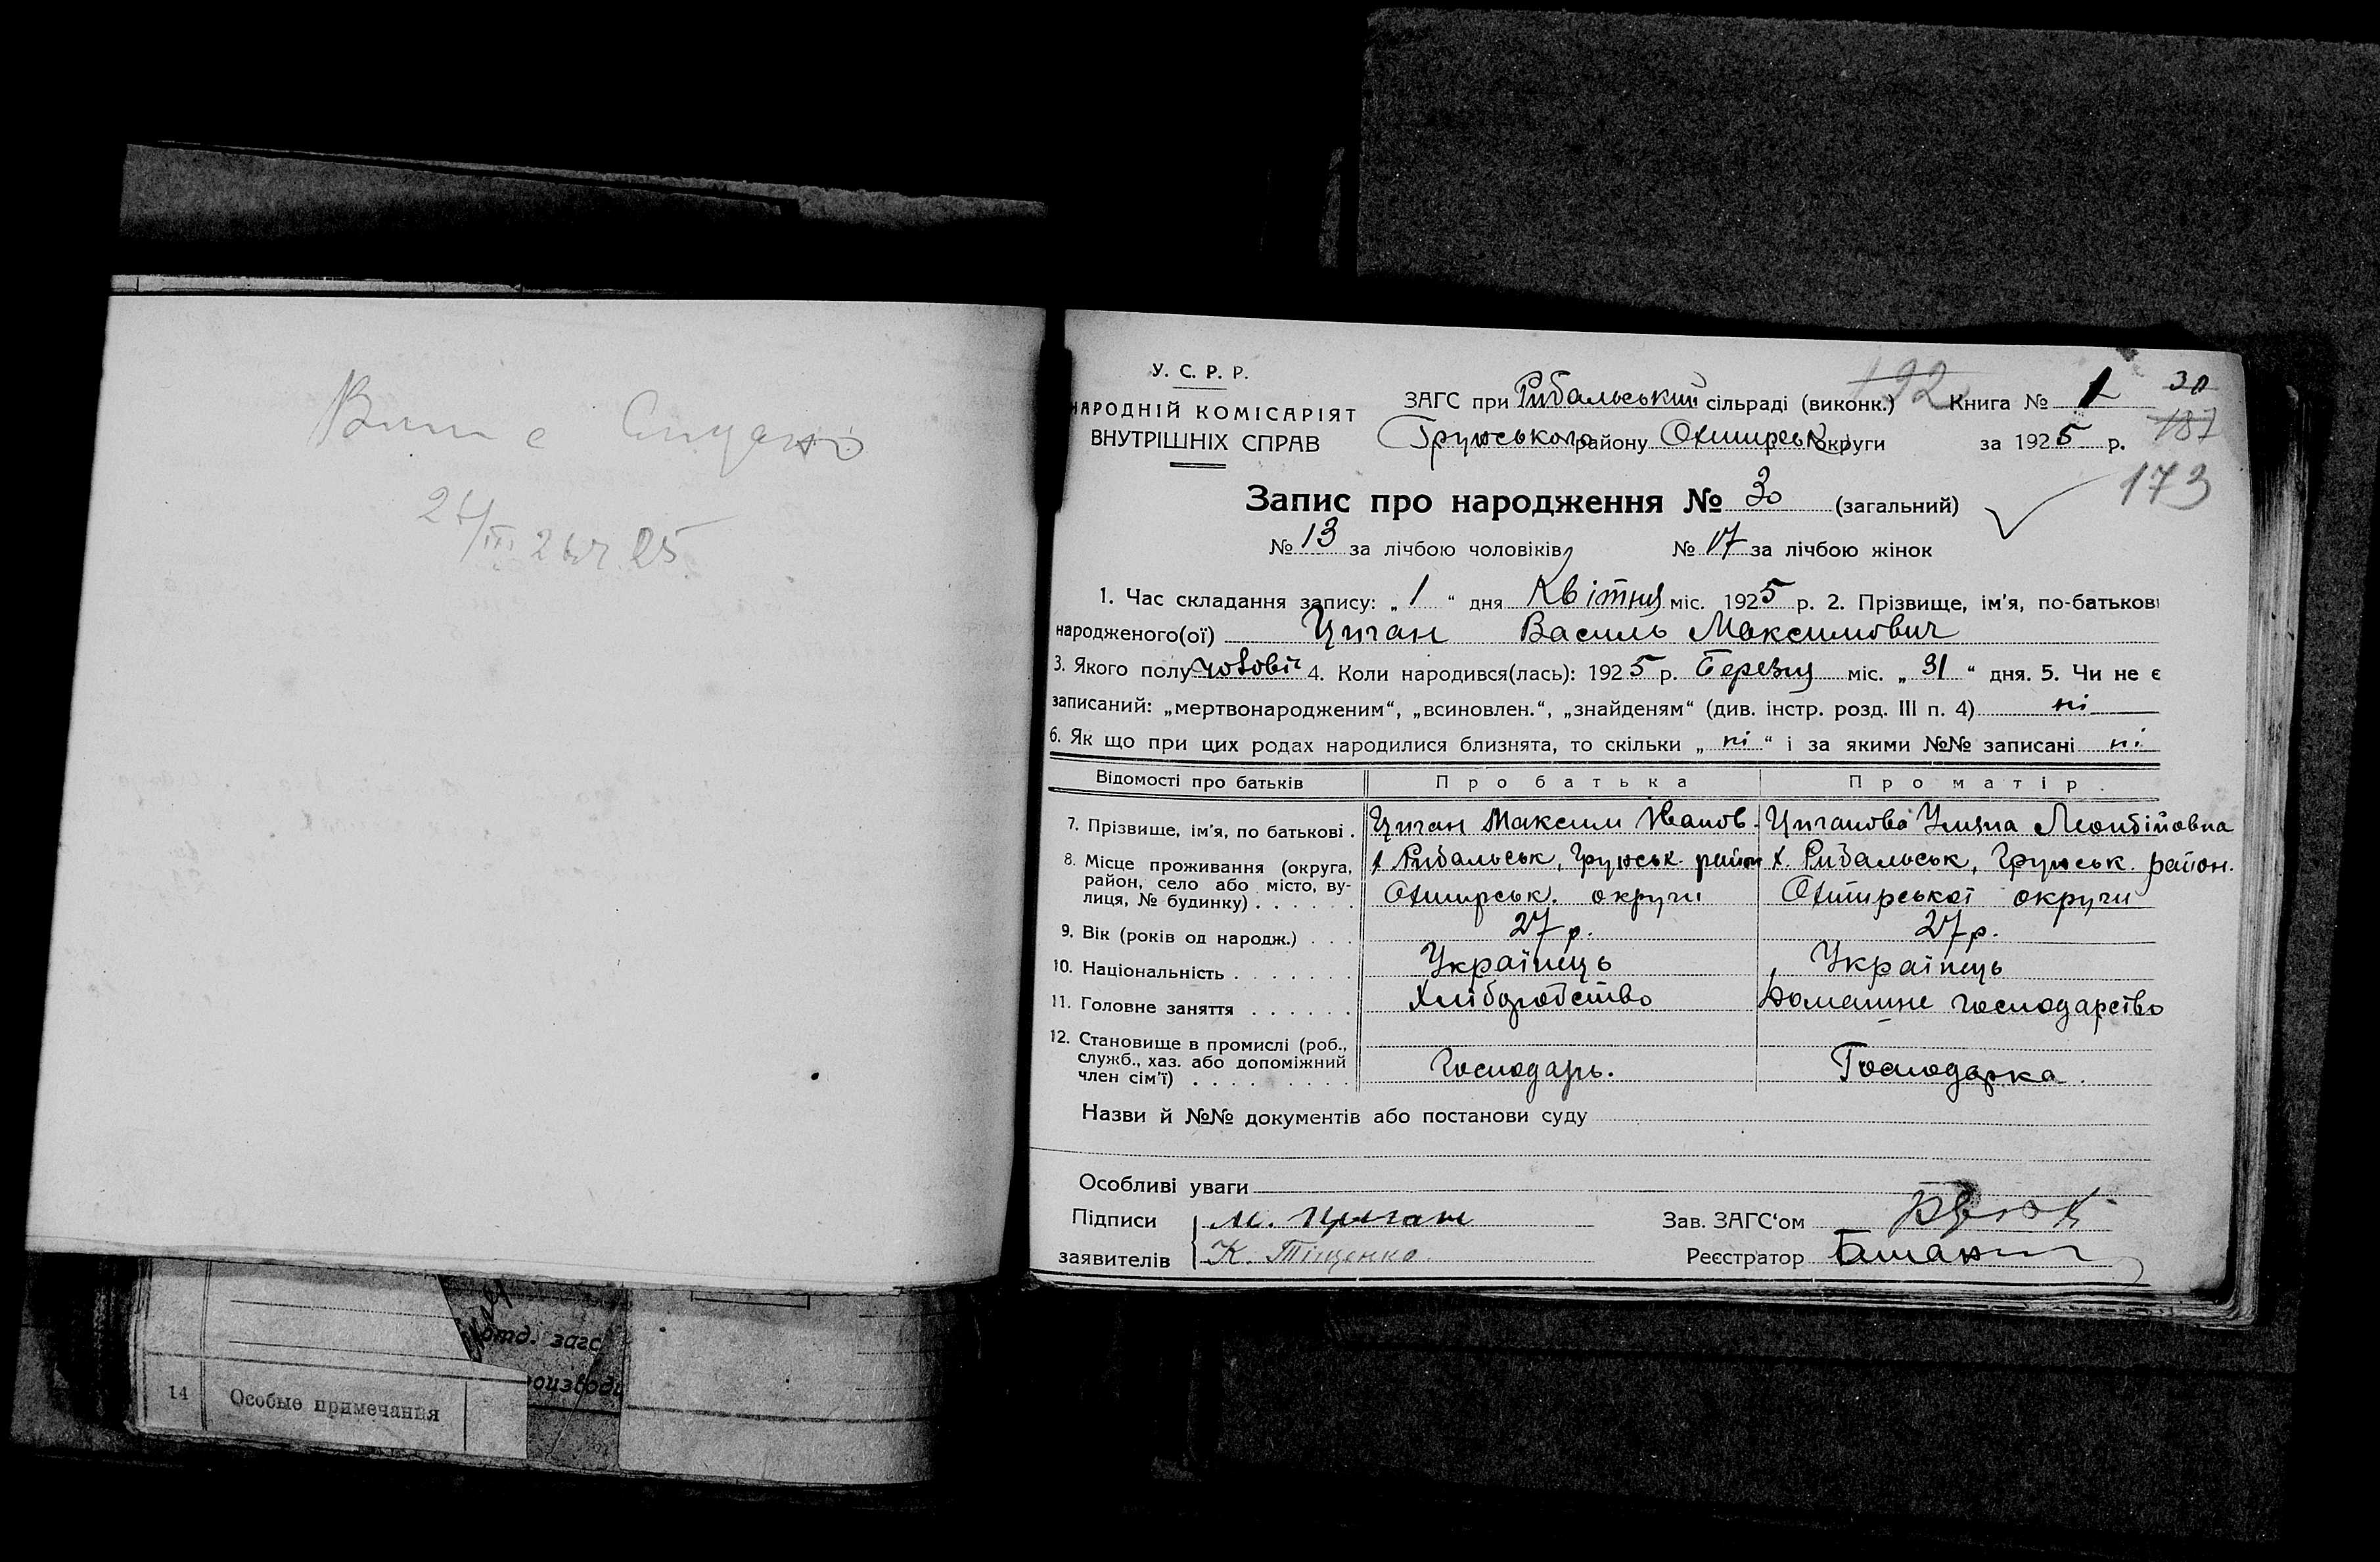 24/III 25
отд. загс
14 Особые примечания
У. С. Р. Р.
НАРОДНІЙ КОМІСАРІЯТ
ВНУТРІШНІХ СПРАВ
ЗАГС при Рибальський сільраді (виконк.) 192 Книга № 1 30
Грунського району Охтирськ округи за 1925 р. 187
173
Запис про народження № 30 (загальний)
№ 13 за лічбою чоловіків № 17 за лічбою жінок
1. Час складання запису: „1“ дня Квітня міс. 1925 р. 2. Прізвище, ім'я, по-батькові
народженого(ої) Циган Василь Максимович
3. Якого полу чоловіч 4. Коли народився(лась): 1925 р. Березня міс. „31“ дня. 5. Чи не є
записаний: „мертвонародженим“, „всиновлен.“, „знайденям“ (див. інстр. розд. III п. 4) ні
6. Як що при цих родах народилися близнята, то скільки „ні“ і за якими №№ записані ні
Відомості про батьків Про батька Про матір.
7. Прізвище, ім'я, по батькові . Циган Максим Иванов. Циганова Уляна Леонтійовна
8. Місце проживання (округа, район, село або місто, вулиця, № будинку) . . . . . . х. Рибальськ, Грунськ. район Охтирськ. округи х. Рибальськ, Грунськ. район. Охтирської округи
9. Вік (років од народж.) . . . 27 р. 27 р.
10. Національність . . . . . . . Українець Українець
11. Головне заняття . . . . . . Хліборобство Домашнє господарство
12. Становище в промислі (роб., служб., хаз. або допоміжний член сім'ї) . . . . . . . . . Господарь. Господарка.
Назви й №№ документів або постанови суду
Особливі уваги
Підписи М. Циган Зав. ЗАГС'ом
заявителів К. Тіщенко. Реєстратор